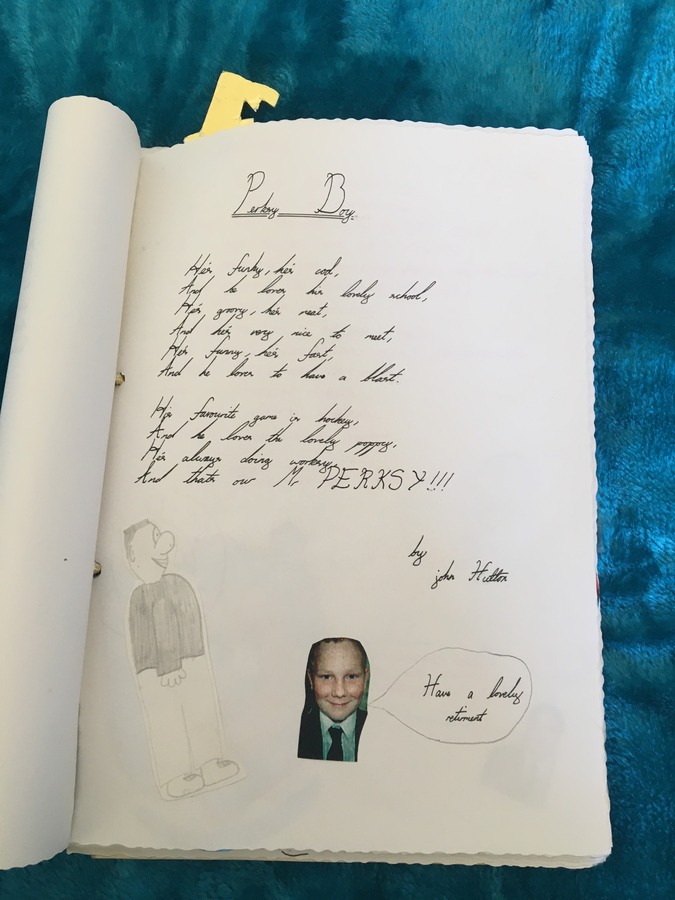 Perksy Boy.
He's funky, he's cool,
And he loves his lovely school,
He's groovy, he's neat,
And he's very nice to meet,
He's funny, he's fast,
And he loves to have a blast.
His favourite game is hockey,
And he loves the lovely poppy,
He's always doing worksy,
And thats our Mr PERKSY!!!
by
john Hutton
Have a lovely
retirment